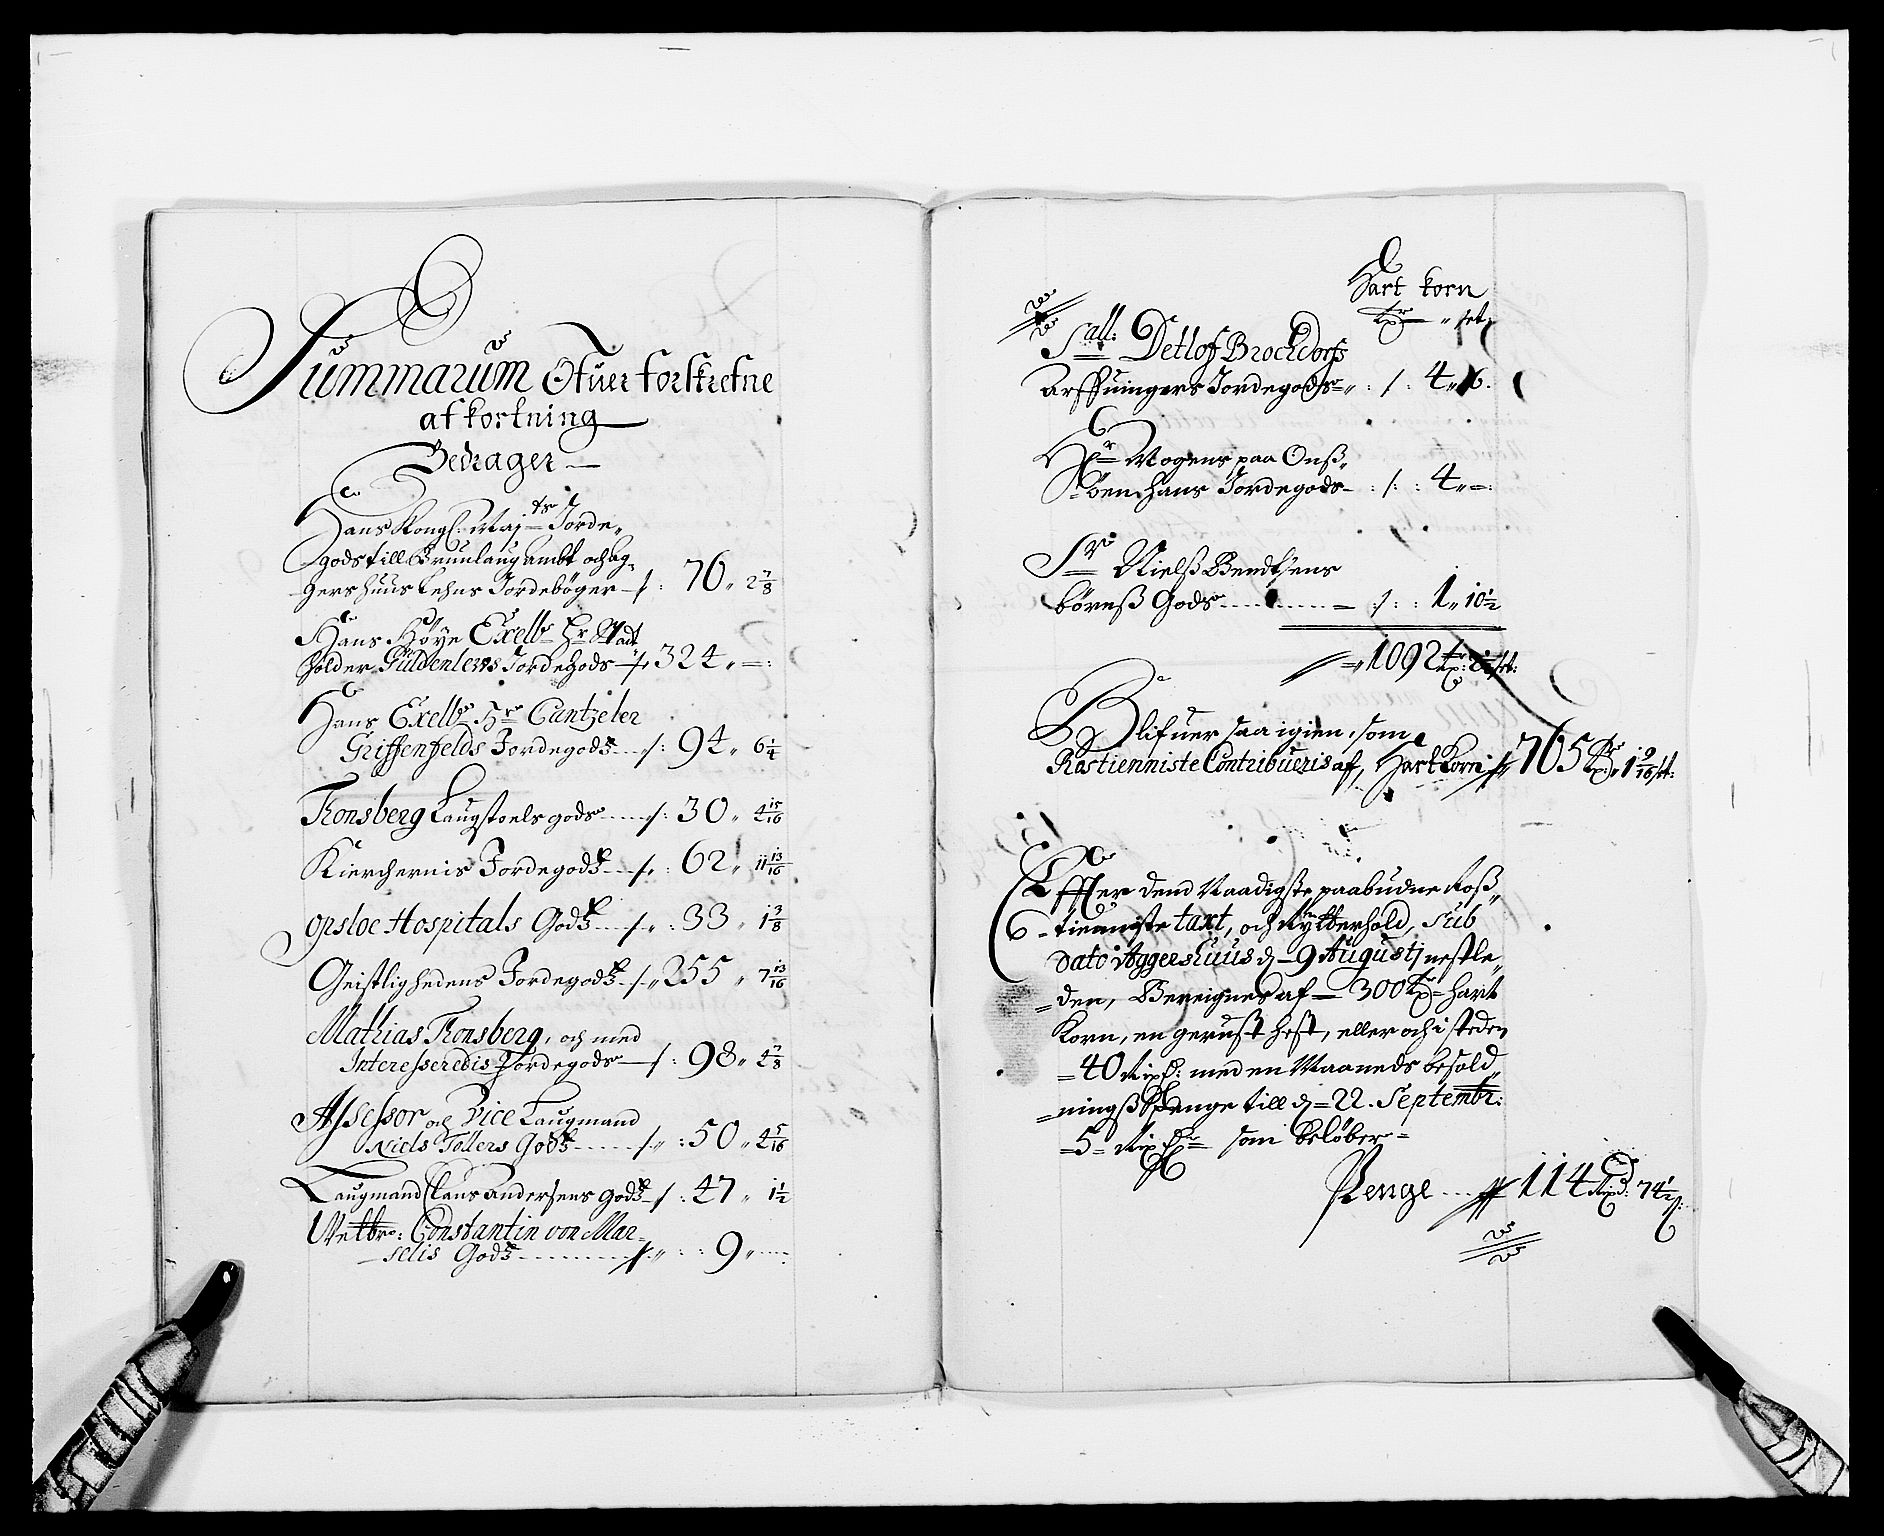 Summarum Ofuer forskrefne
afkortning
Bedrager
Hans Kongl: Maj:ts Jorde„
gods till Brunlaug ambt och Ag„
gershuus Lehns Jordebøger — /: 76 „ 2 7/8
Hans Høye Excell: Hr Stadt„
holder Güldenlews JordeGods — /: 324 „ — :
Hans Excell: Hr Cantzeler
Griffenfelds Jordegods — /: 94 „ 6 1/4
Tronsberg Laugstoels gods — /: 30 „ 4 15/16
Kierchernis Jordegods — /: 62 „ 11 13/16
Opsloe Hospitals Gods — /: 33 „ 1 3/8
Geistlighedens Jordegods — /: 255 „ 7 13/16
Mathias Tronsberg, och med
Interesseredis Jordegods — /: 98 „ 4 7/8
Assessor och Vice Laugmand
Niels Tollers Gods — /: 50 „ 4 5/16
Laugmand Claus Andersens gods — /: 47 „ 1 1/2
Velbr: Constantin von Mar„
selis Gods — /: 9 „
Hart korn
Tr „ set:
Sall: Detlof Brochdorfs
Arffuingers Jordegods „ : /: 4 „ 6.
Hr Mogens paa Onß„
öen hans Jordegods — : /: 4 „ — :
Sr Nielß Bendtsens
börnß Gods — /: 1 „ 10 1/2
1092
Blifuer saa igien, som
Rostienniste Contribueris af, Hart Korn // 765 Tr: 1 9/16 set:
Effter dend Naadigste paabudne Roß„
tienniste taxt, och Rytterhold, Sub
Dato Aggershuus d. 9 Augustj nestle„
den, Bereignes af — 300 Tr Hart
Korn, en gerust hest, eller och i steden
40 Rixd: med en Maaneds besold„
ningß Penge till d. 22. Septembr:
5 Rixd som beløber
Penge // 114 Rixd: 74 1/2 s: